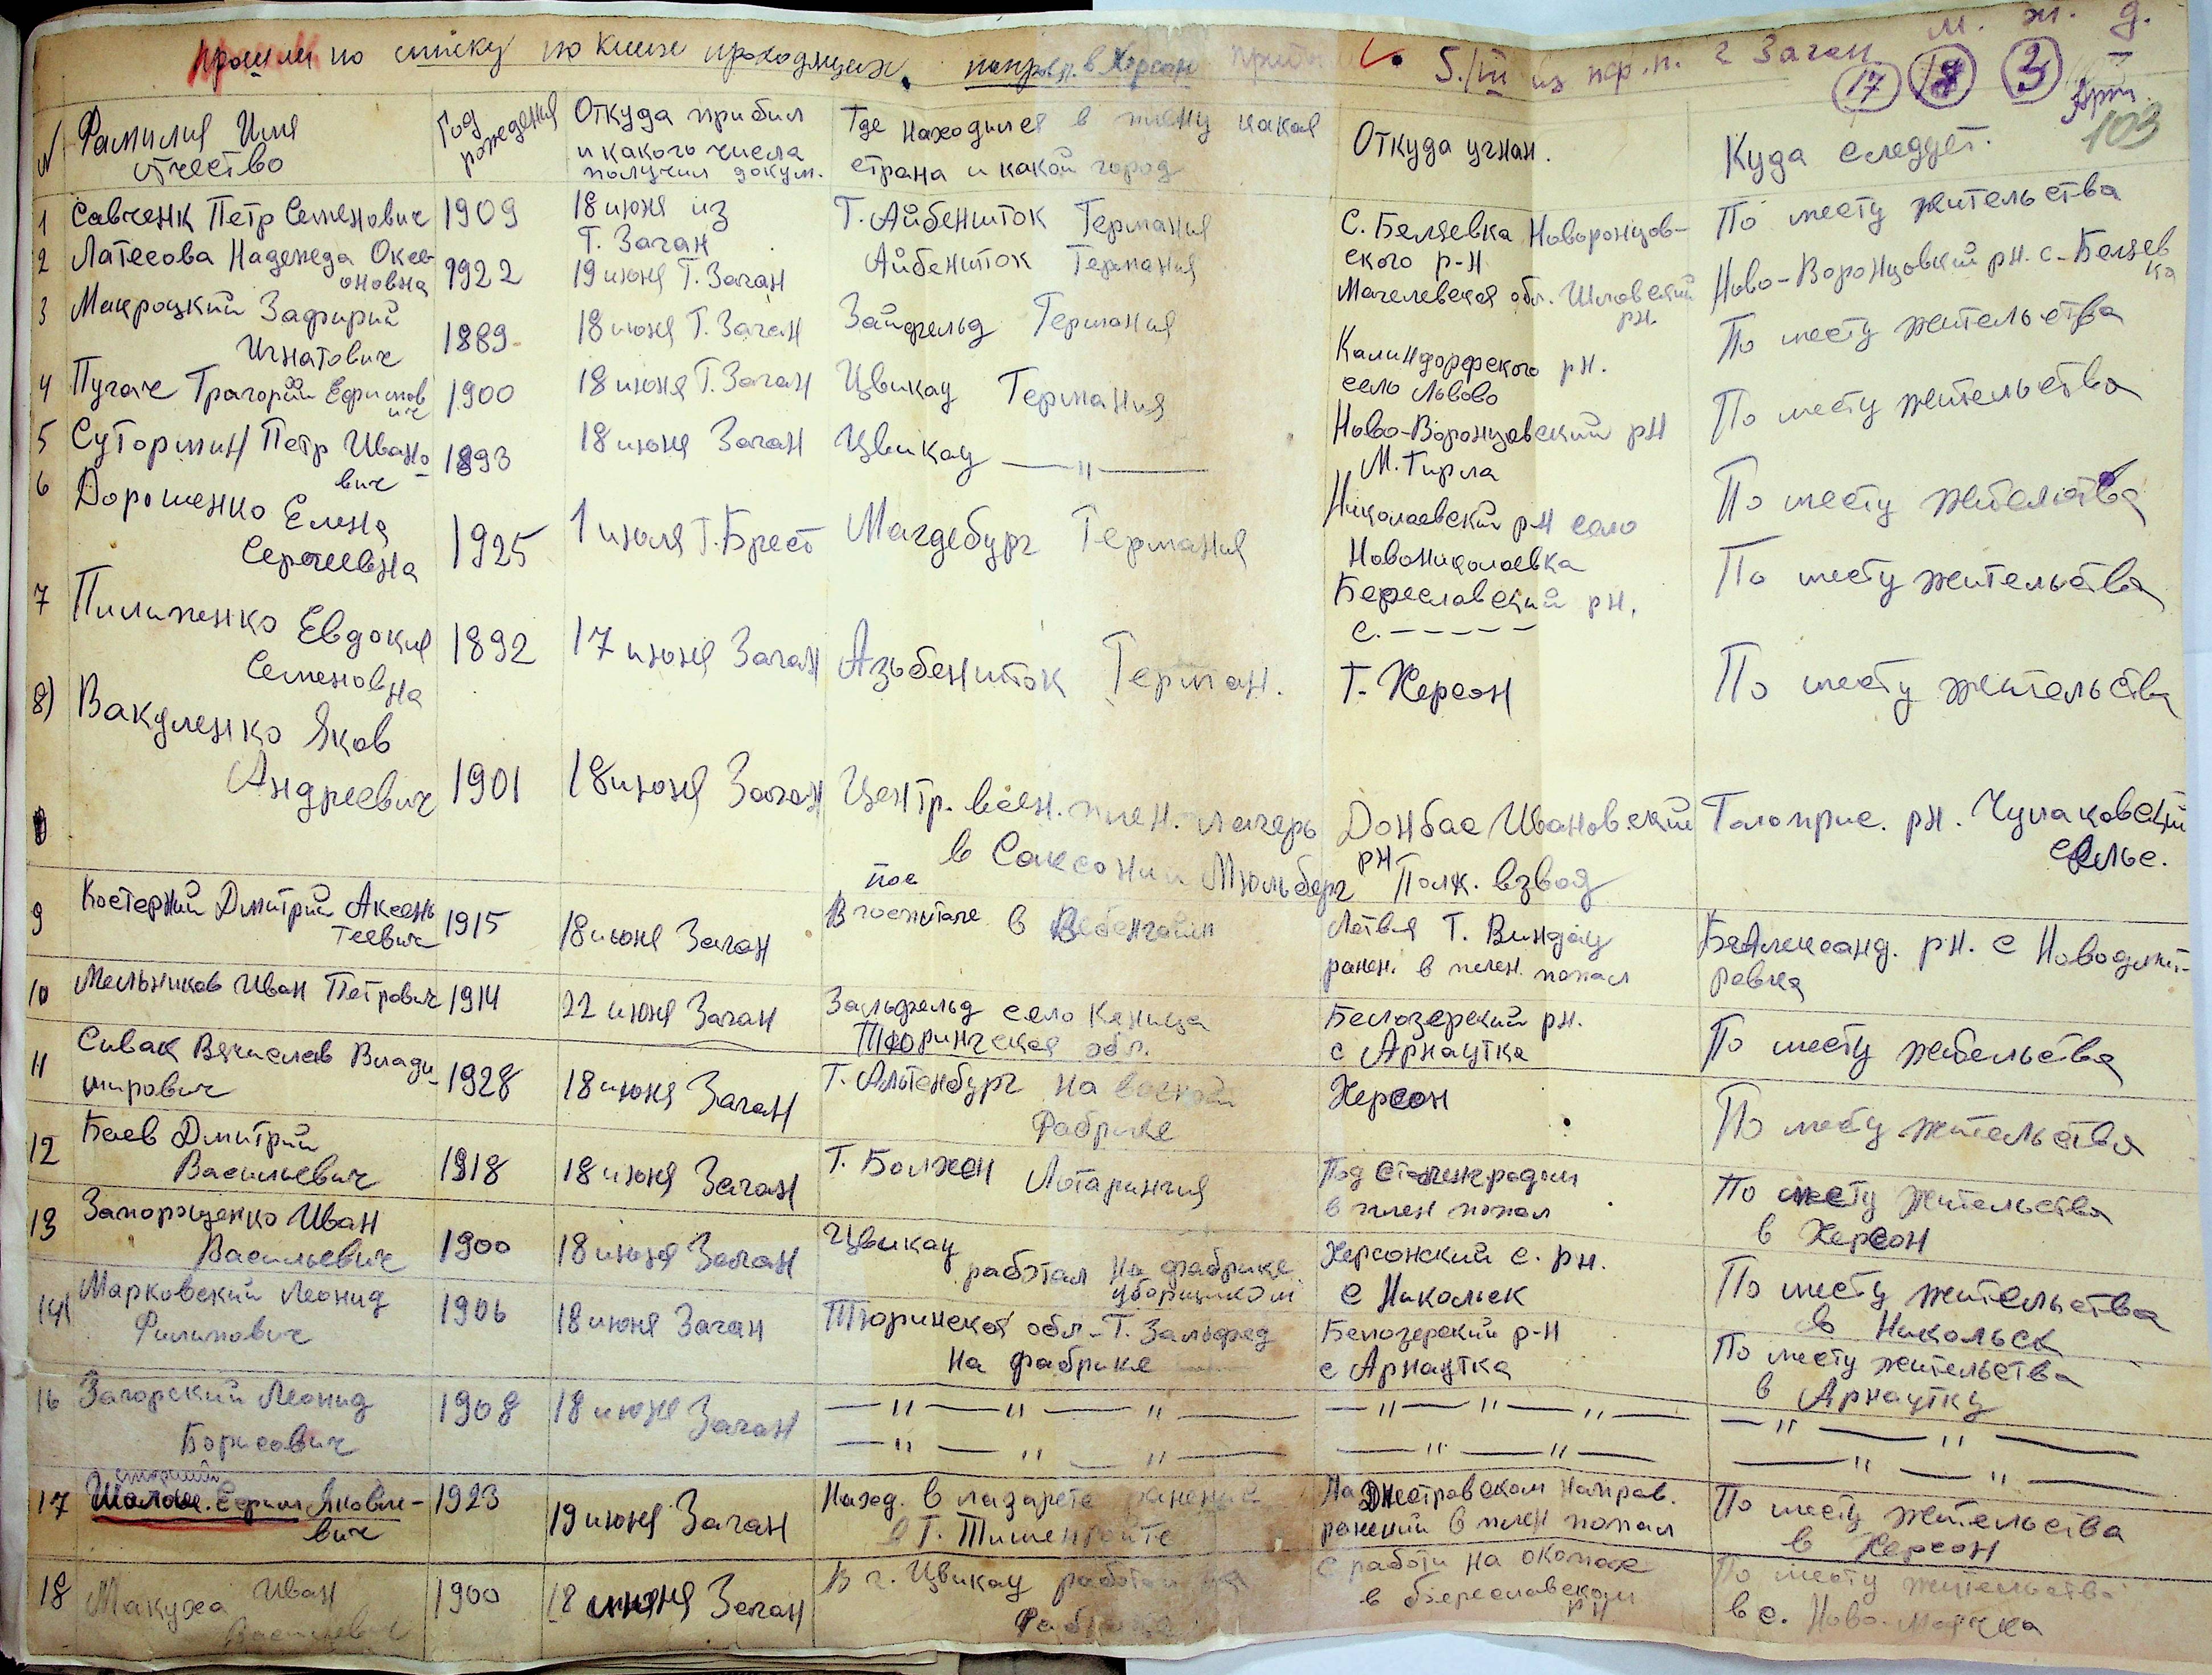 прошли по списку по книге проходящих. направл. в Херсон 5./III из пер.п. г Заган м. ж. д.
17 18 3
103
№ Фамилия Имя отчество
Год рождения
Откуда прибил и какого числа получил докум.
Где находился в плену какая страна и какой город
Откуда угнан.
Куда следует.
1 Савченк Петр Семенович 1909 18 июня из Г. Заган Г. Айбеншток Германия С. Беляевка Новоронцовского р-н По месту жительства
2 Латесова Надежда Оксеоновна 1922 19 июня Г. Заган Айбеншток Германия Магелевская обл. Шловский рн. Ново-Воронцовкий рн. с. Беляевка
3 Макроцкий Зафирий Игнатович 1889 18 июня Г. Заган Зайфельд Германия Калиндорфского рн. село Львово По месту жительства
4 Пугач Грагорий Ефимович 1900 18 июня Г. Заган Цвикау Германия Ново-Воронцовский рн М. Гирла По месту жительства
5 Сутормин Петр Иванович 1893 18 июня Заган Цвикау —"— Николаевский р-н село Новониколаевка По месту жительства
6 Дорошенко Елена Сергеевна 1925 1 июля Г. Брест Магдебург Германия Береславский рн. с. - - - - - По месту жительства
7 Пилипенко Евдокия Семеновна 1892 17 июня Заган Азьбеншток Герман. Г. Херсон По месту жительства
8) Вакуленко Яков Андреевич 1901 18 июня Заган Центр. воен. плен. лагерь в Саксонии Мюльберг Донбас Ивановский рн Полк. взвод Голоприс. рн. Чулаковский сельс.
9 Костерний Дмитрий Аксеньтеевич 1915 18 июня Заган В госпитале в Латвия Г. Виндау ранен. в плен. попал Б. Александ. рн. с Новодмитровка
10 Мельников Иван Петрович 1914 22 июня Заган Зальфельд село Кеница Тюрингская обл. Белозерский рн. с Арнаутка По месту жительства
11 Сивак Вячислав Владимирович 1928 18 июня Заган Г. Альтенбург на Фабрике Херсон По месту жительства
12 Баев Дмитрий Васильевич 1918 18 июня Заган Г. Болхен Лотарингия Под Сталенградом в плен попал По месту жительства в Херсон
13 Запорощенко Иван Васильевич 1900 18 июня Заган Цвикау работал на фабрике уборщиком Херсонский с. рн. с Никольск По месту жительства в Никольск
14 Марковский Леонид Филипович 1906 18 июня Заган Тюринская обл. Г. Зальфед на фабрике Белозерский р-н с Арнаутка По месту жительства в Арнаутку
16 Загорский Леонид Борисович 1908 18 июня Заган —"—"—"— —"—"—"— —"—"—
—"—"—"— —"—"— —"—"—
17 Яковлевич 1923 19 июня Заган Наход. в лазарете ранений в Г. На Днестровском направ. ранений в плен попал По месту жительства в Херсон
18 Макуха Иван Васильевич 1900 18 июня Заган В г. Цвикау работал на Фабрике С работи на окопах в Береславском рн По месту жительства в с. Ново-Маячка